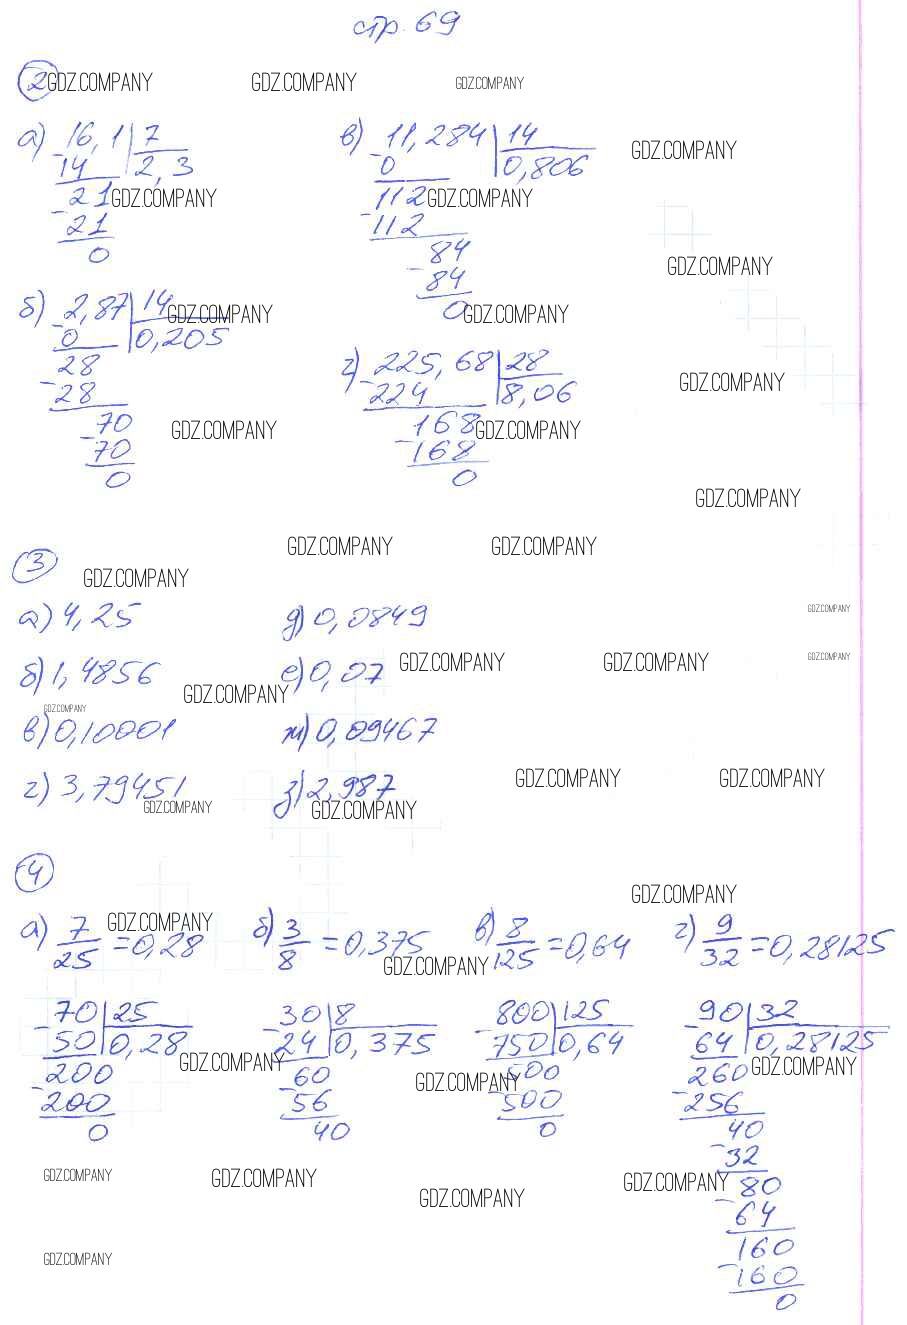 стр. 69
2 GDZ.COMPANY GDZ.COMPANY GDZ.COMPANY
а) 16,1 | 7 в) 11,284 | 14 GDZ.COMPANY
-14 2,3 -0 0,806
21 GDZ.COMPANY 112 GDZ.COMPANY
-21 -112
0 84 GDZ.COMPANY
-84
б) 2,87 | 14 GDZ.COMPANY 0 GDZ.COMPANY
-0 0,205
28 г) 225,68 | 28
-28 -224 8,06 GDZ.COMPANY
70 GDZ.COMPANY 168 GDZ.COMPANY
-70 -168
0 0
GDZ.COMPANY
GDZ.COMPANY GDZ.COMPANY
3 GDZ.COMPANY
а) 4,25 д) 0,0849 GDZ.COMPANY
б) 1,4856 GDZ.COMPANY е) 0,07 GDZ.COMPANY GDZ.COMPANY GDZ.COMPANY
GDZ.COMPANY
в) 0,10001 ж) 0,09467
г) 3,79451 з) 2,987 GDZ.COMPANY GDZ.COMPANY
GDZ.COMPANY GDZ.COMPANY
4 GDZ.COMPANY
а) 7/25 = 0,28 б) 3/8 = 0,375 в) 8/125 = 0,64 г) 9/32 = 0,28125
GDZ.COMPANY GDZ.COMPANY
-70 | 25 -30 | 8 -800 | 125 -90 | 32
50 0,28 24 0,375 750 0,64 64 0,28125
200 GDZ.COMPANY 60 GDZ.COMPANY 500 260 GDZ.COMPANY
-200 -56 -500 -256
0 40 0 40
-32
GDZ.COMPANY GDZ.COMPANY GDZ.COMPANY GDZ.COMPANY 80
-64
160
GDZ.COMPANY -160
0